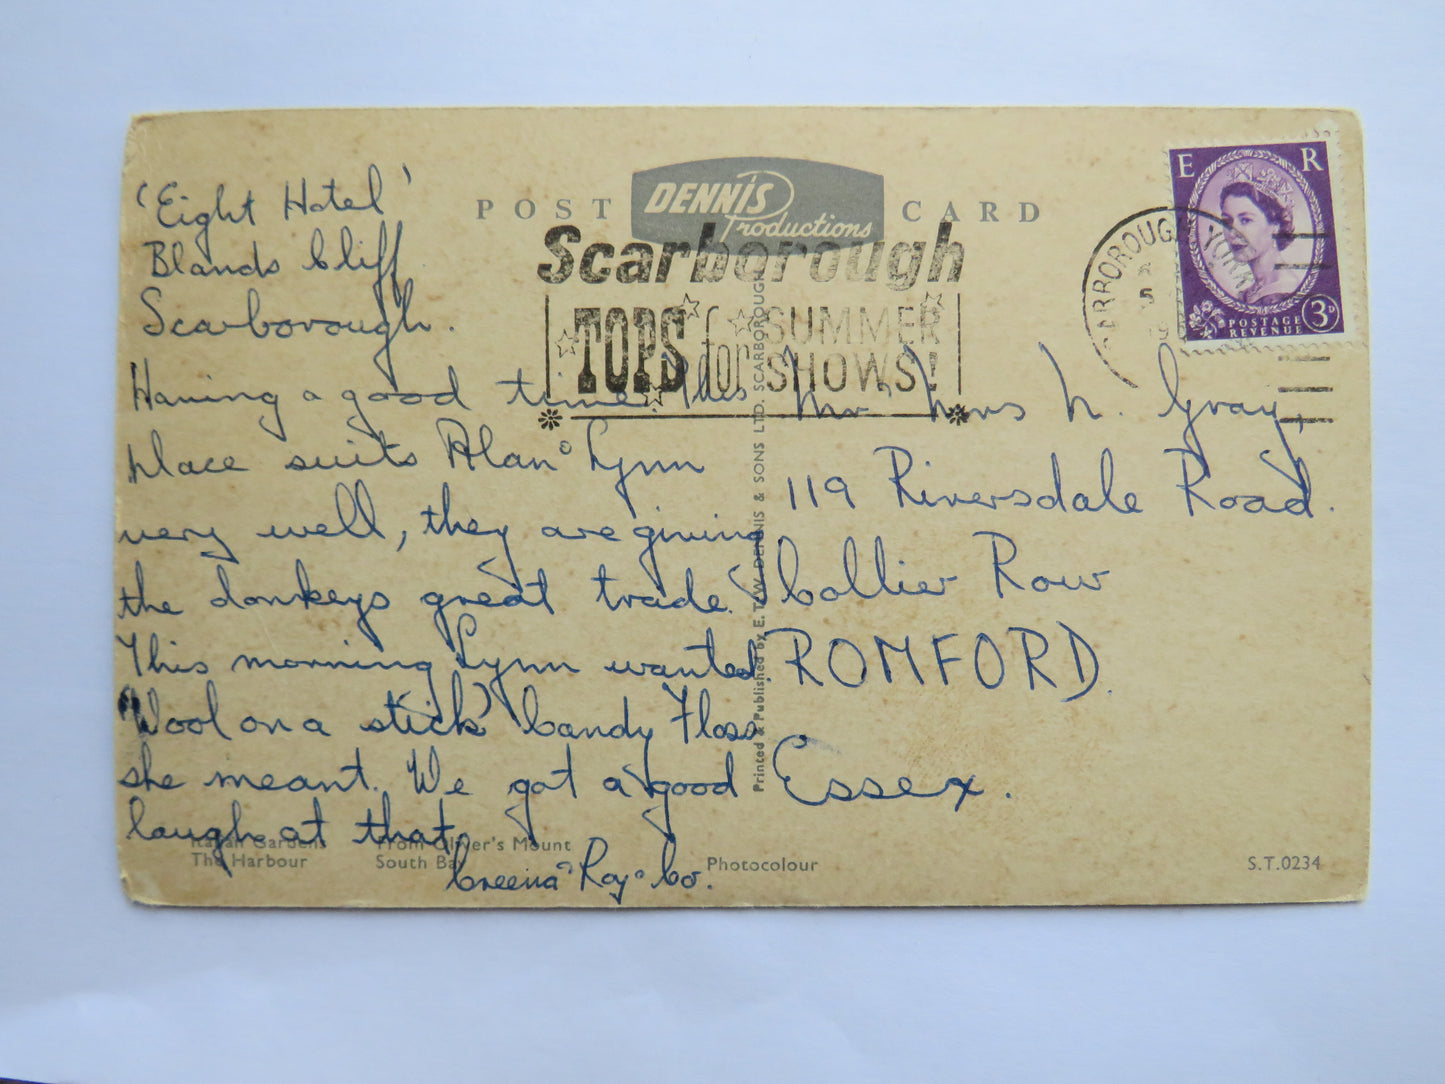 POST CARD
DENNIS
Productions
Scarborough
TOPS for SUMMER
SHOWS!
E R
POSTAGE
REVENUE
3D
'Eight Hotel'
Blands Cliff
Scarborough.
Having a good time. This
place suits Alan & Lynn
very well, they are giving
the donkeys great trade.
This morning Lynn wanted
"Wool on a stick" Candy Floss
she meant. We got a good
laugh at that.
Creena & Roy & Co.
Mr & Mrs L. Gray,
119 Riversdale Road.
Collier Row
ROMFORD.
Essex.
Printed & Published by E. T. W. DENNIS & SONS LTD. SCARBOROUGH
Italian Gardens From Oliver's Mount
The Harbour South Bay
Photocolour
S.T.0234